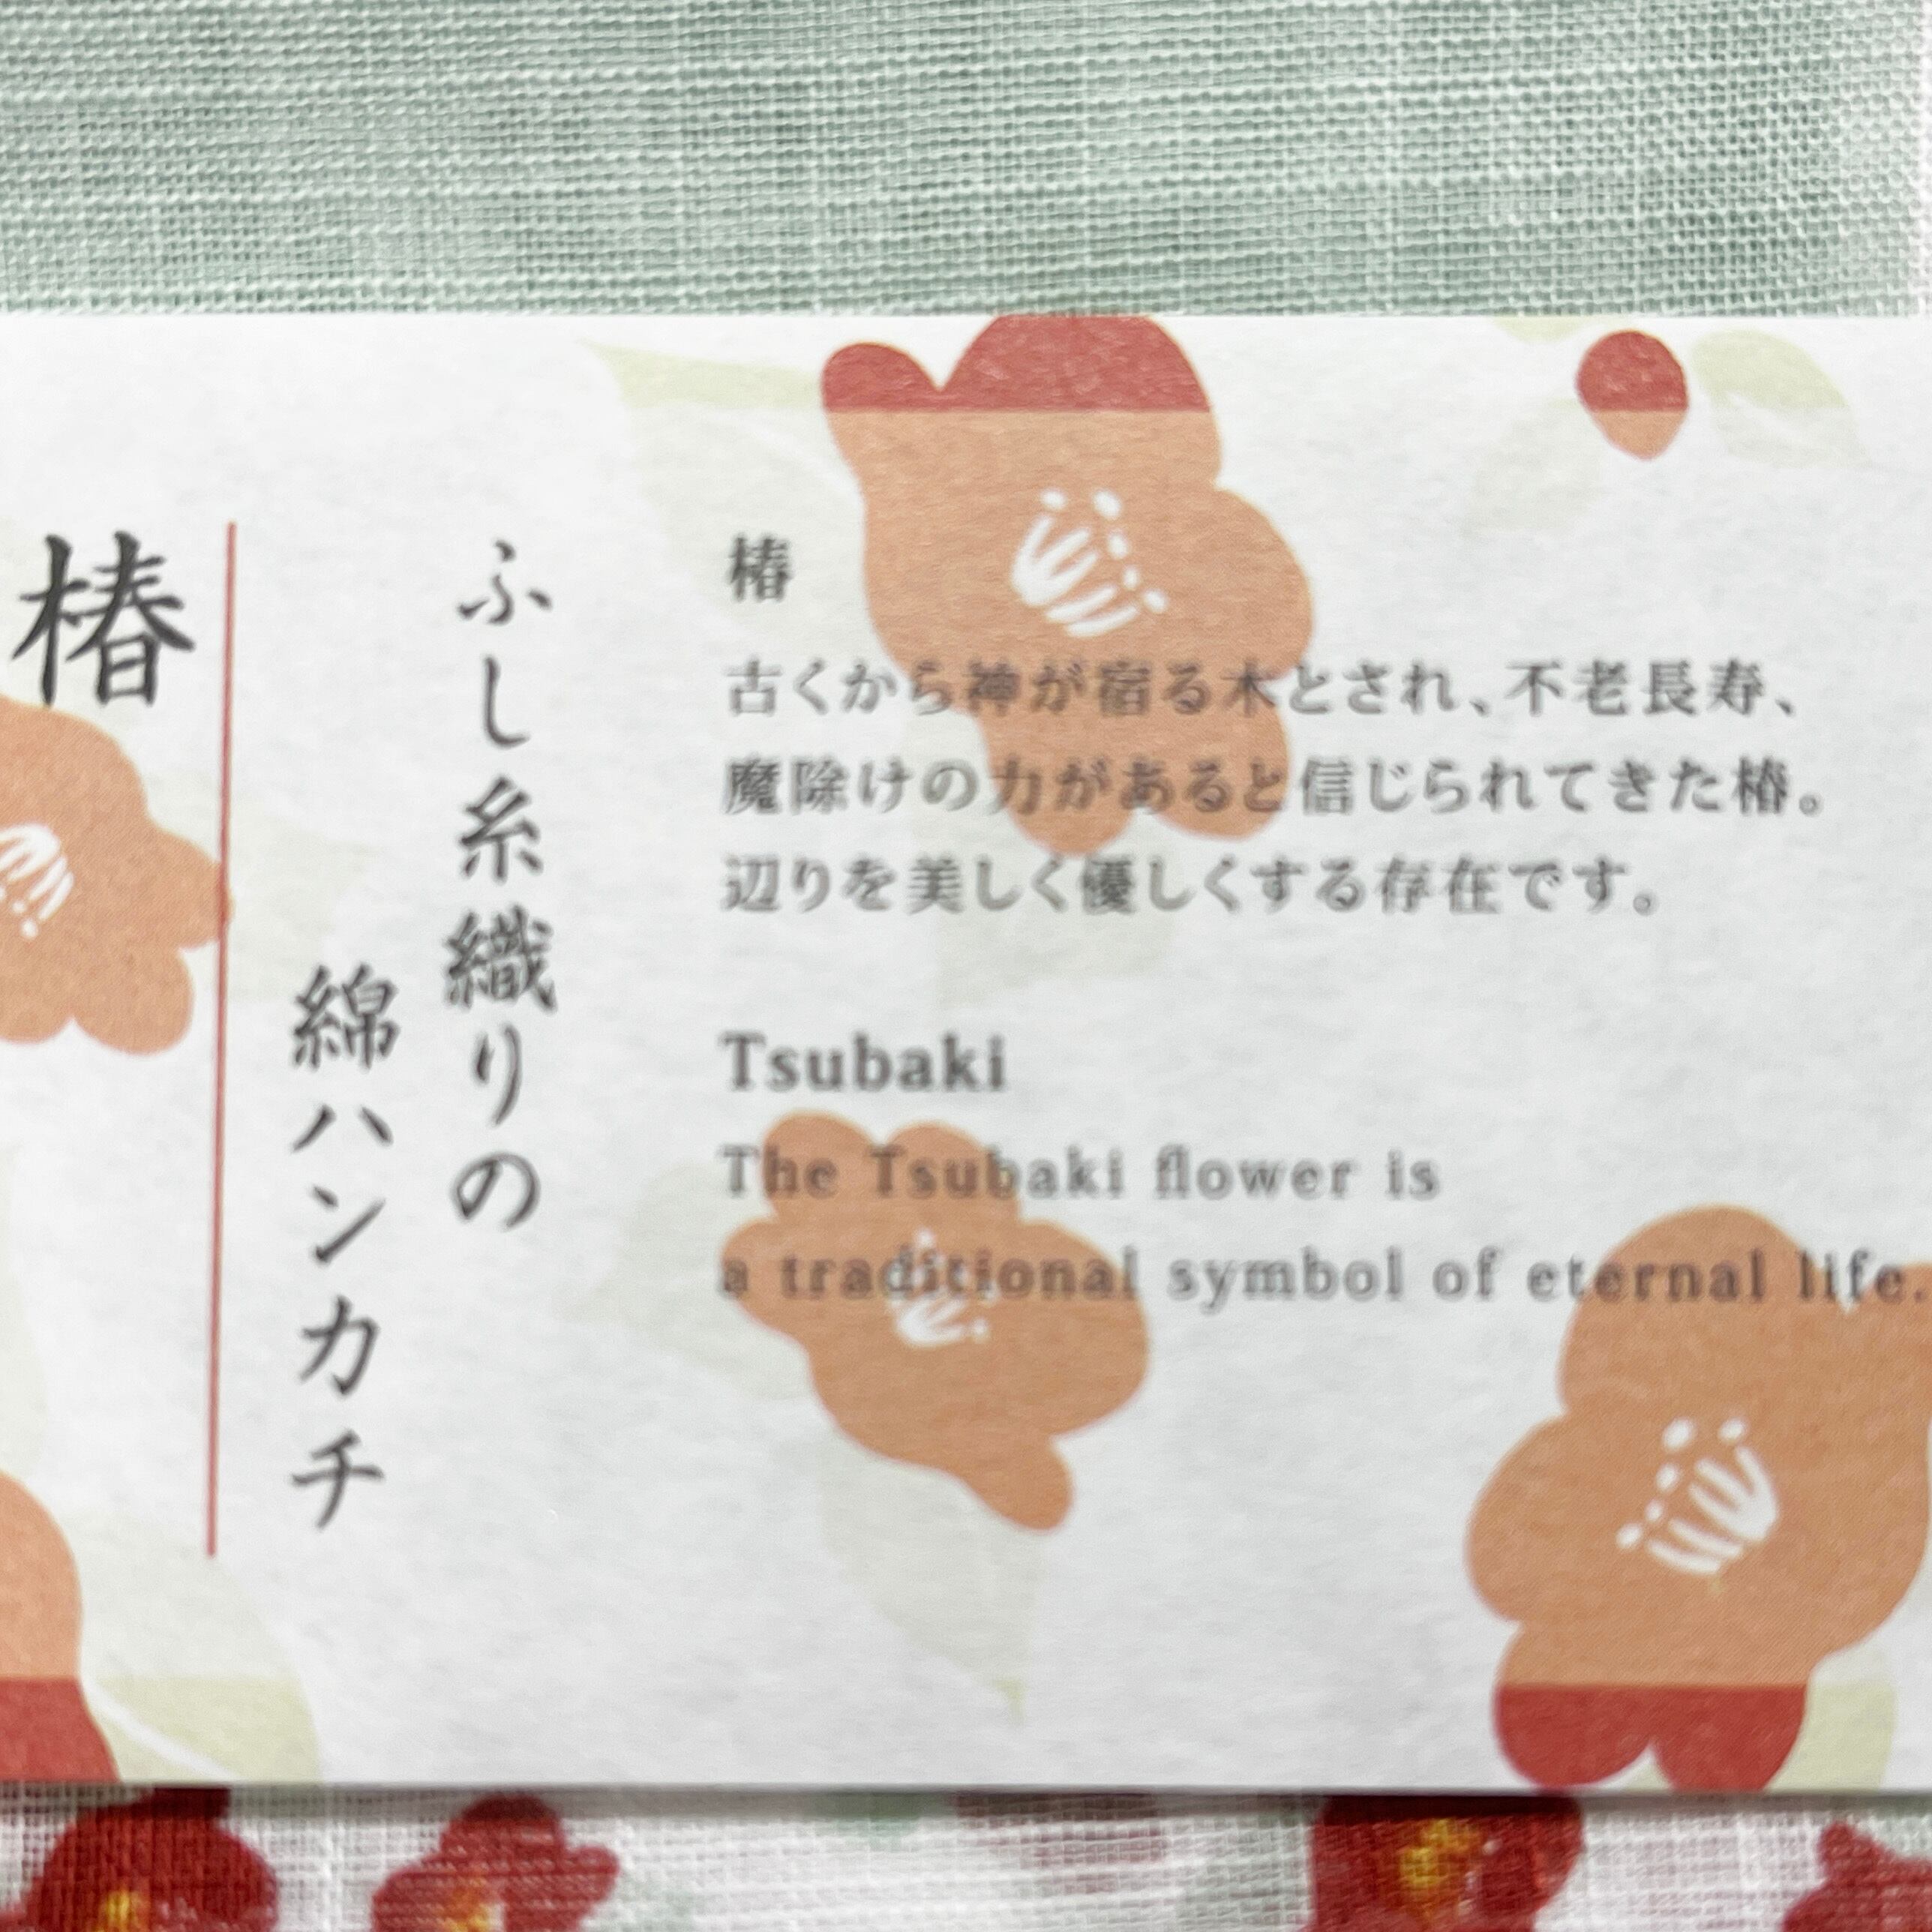 椿
ふし糸織りの
綿ハンカチ
椿
古くから神が宿る木とされ、不老長寿、
魔除けの力があると信じられてきた椿。
辺りを美しく優しくする存在です。
Tsubaki
The Tsubaki flower is
a traditional symbol of eternal life.